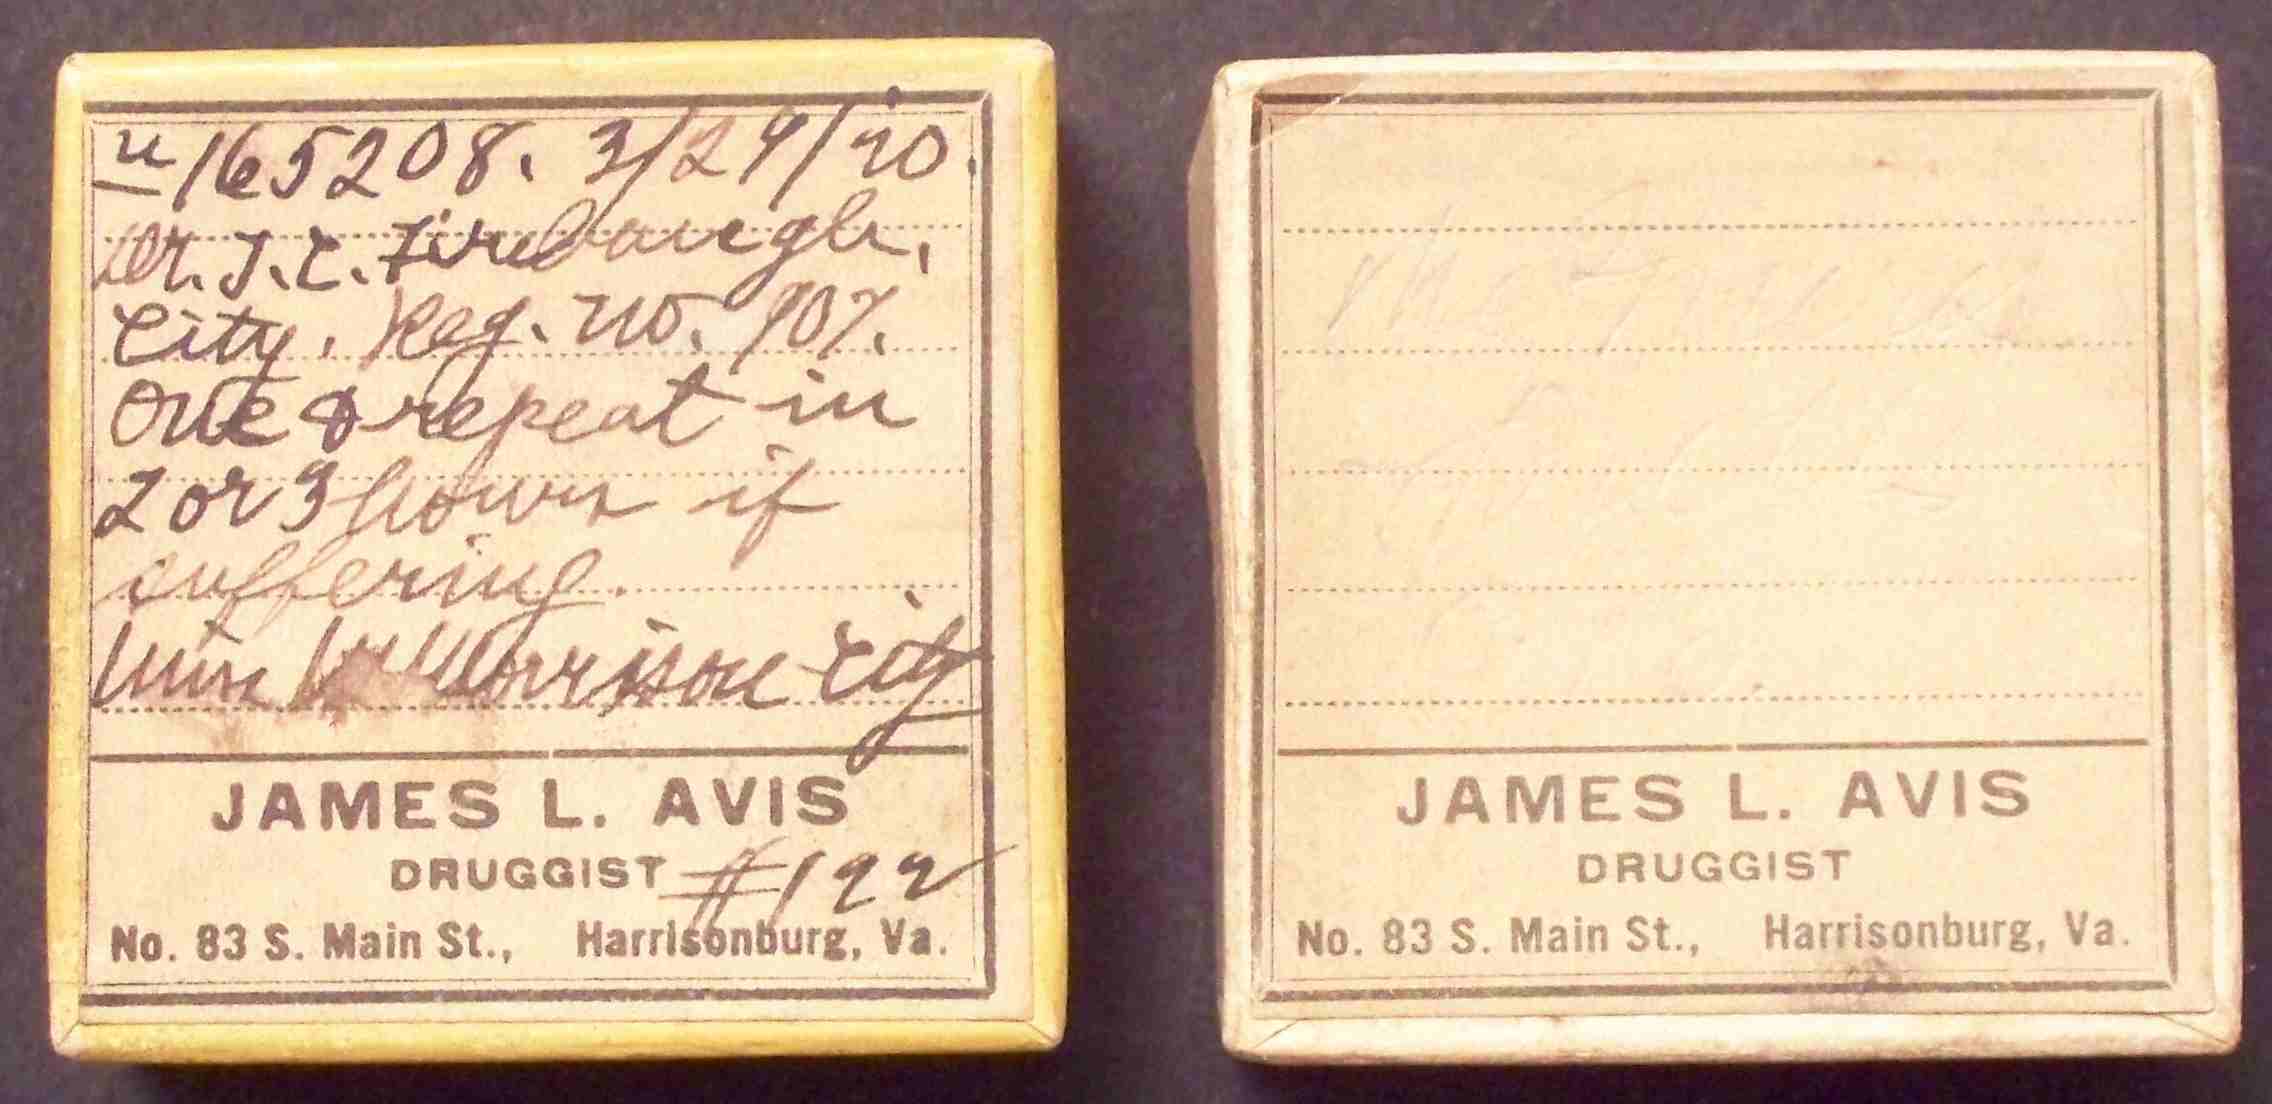 165208. 3/29/20.
Dr. T. C. Firebaugh,
City. Reg. no. 907.
One & repeat in
2 or 3 hours if
suffering.
Morrison City
JAMES L. AVIS
DRUGGIST #122
No. 83 S. Main St., Harrisonburg, Va.
JAMES L. AVIS
DRUGGIST
No. 83 S. Main St., Harrisonburg, Va.